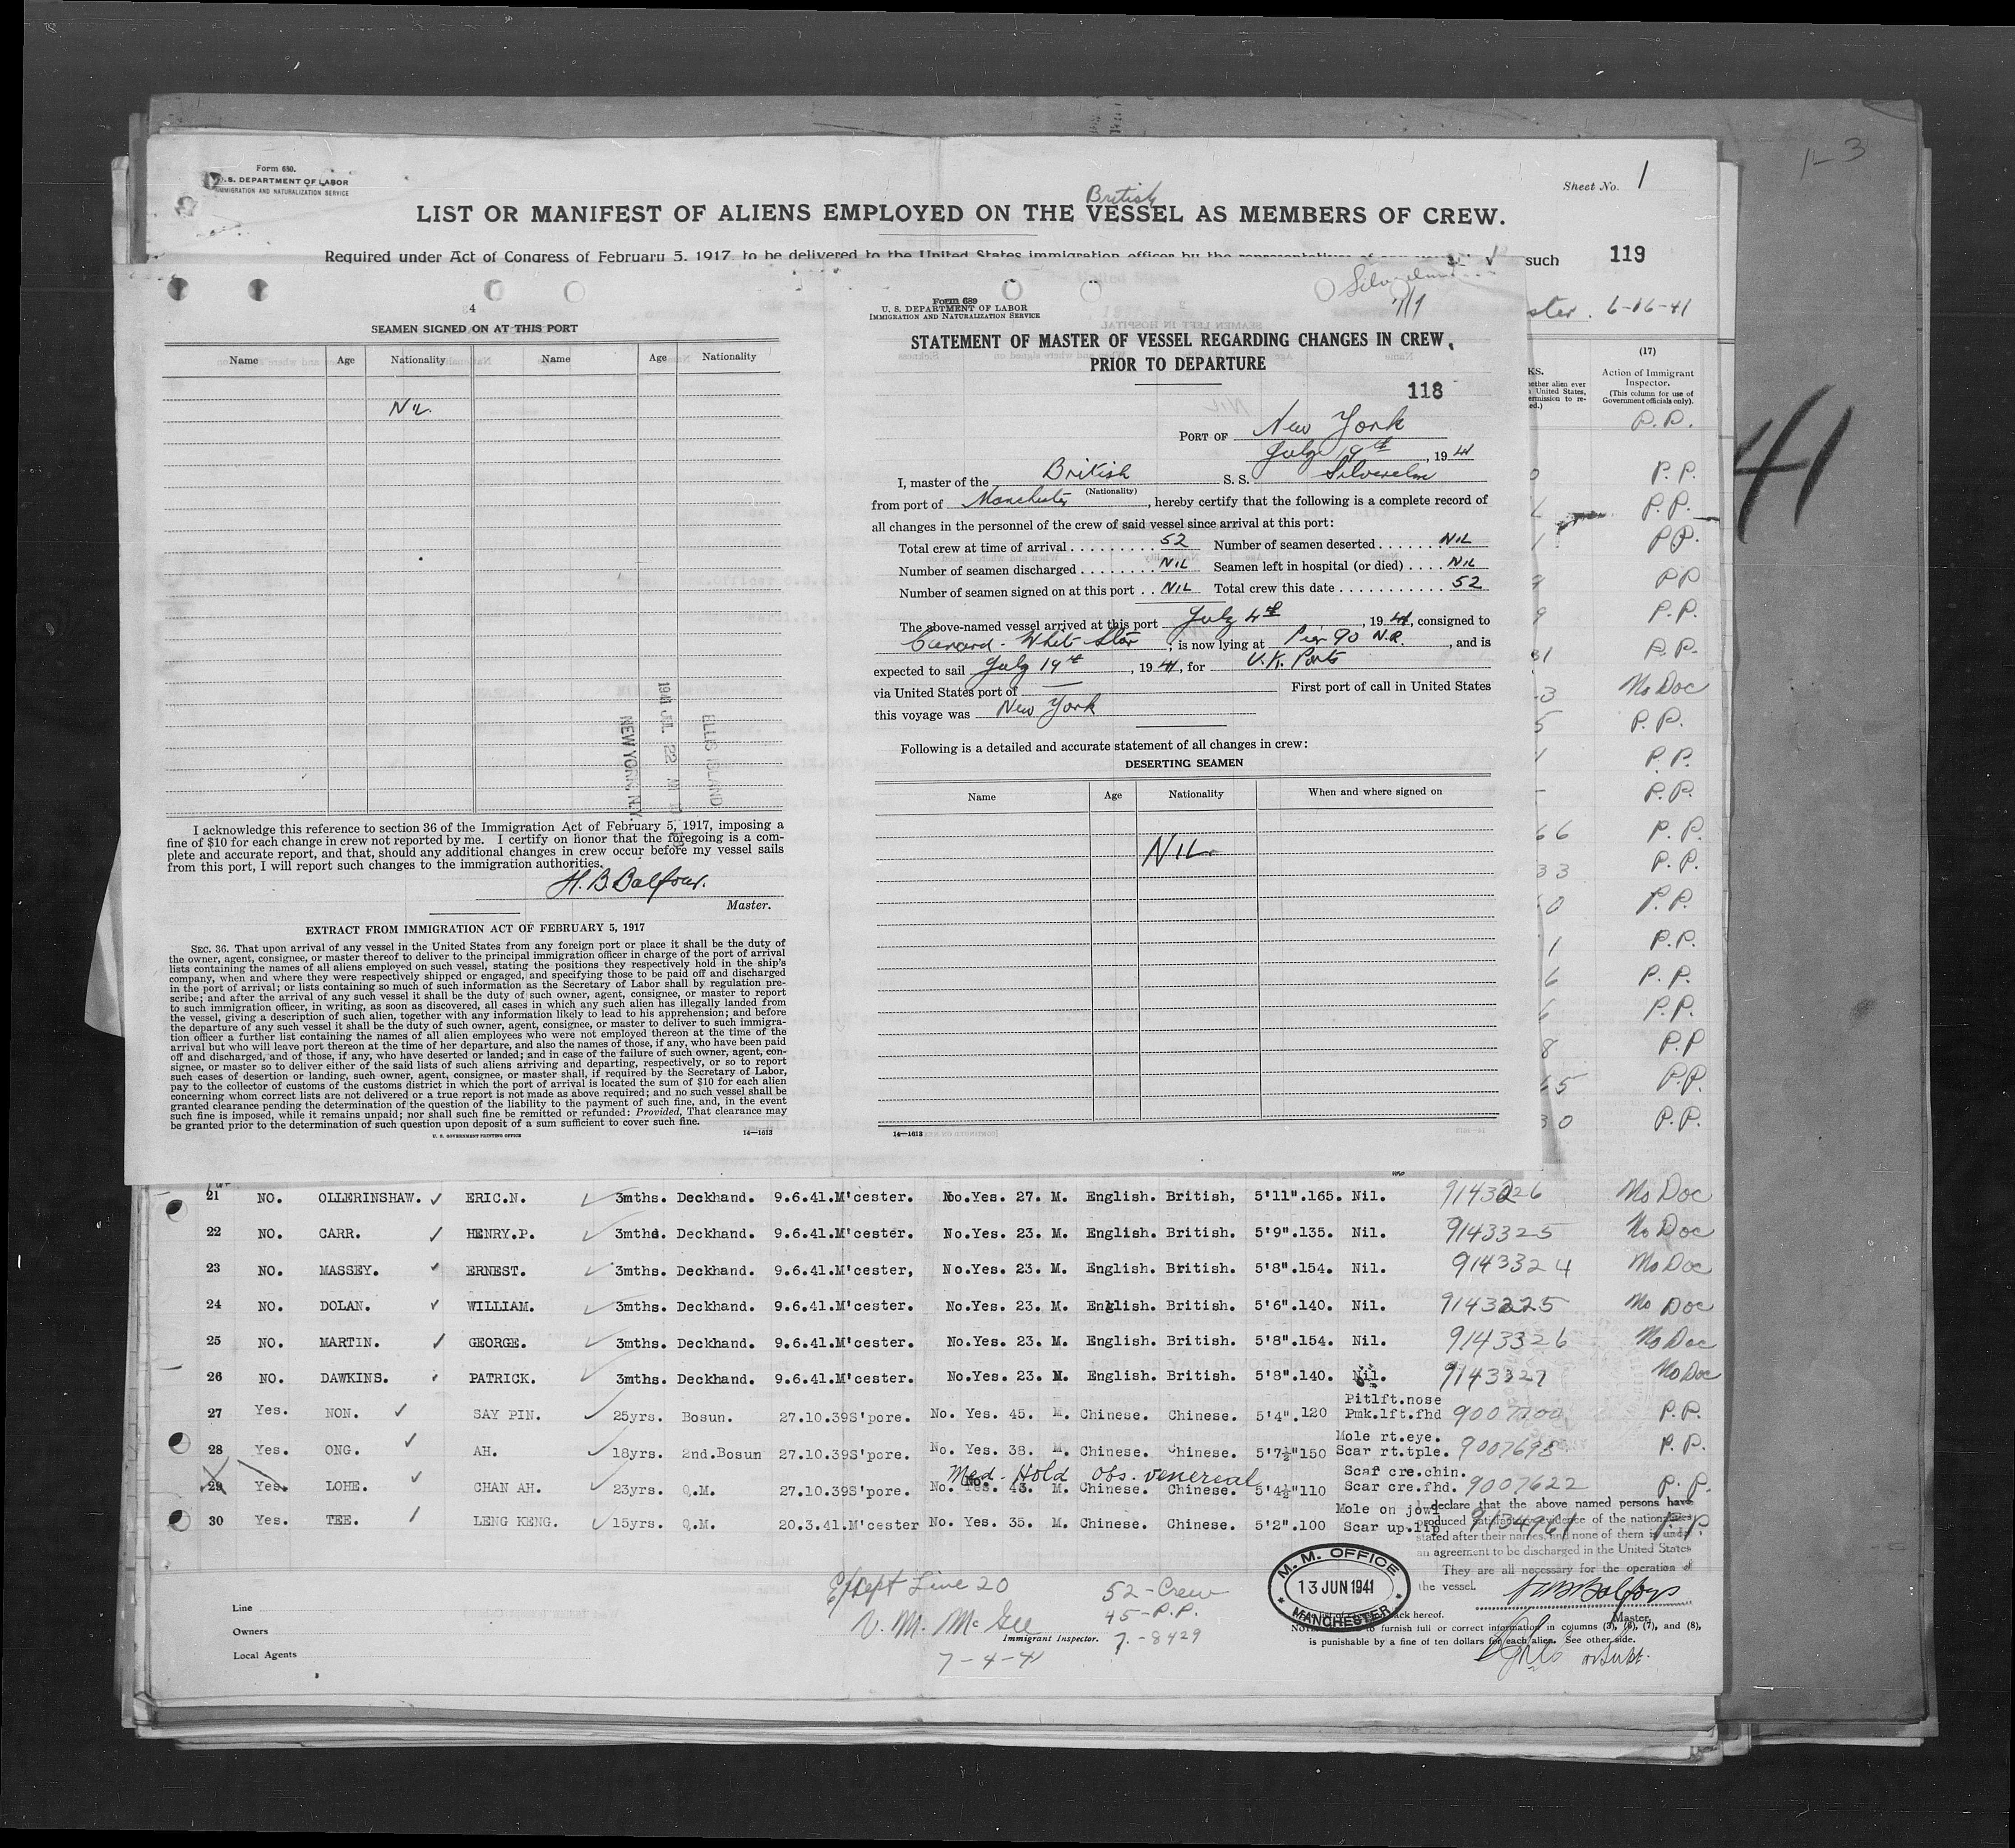 1-3
Form 680.
U. S. DEPARTMENT OF LABOR
IMMIGRATION AND NATURALIZATION SERVICE
Sheet No. 1
British
LIST OR MANIFEST OF ALIENS EMPLOYED ON THE VESSEL AS MEMBERS OF CREW.
Required under Act of Congress of February 5, 1917, to be delivered to the United States immigration officer by the representatives of any vessel such
119
ster. 6-16-41
(17)
Action of Immigrant
Inspector.
(This column for use of
Government officials only).
KS.
ether alien ever
United States,
ermission to re-
ed.)
P.P.
0 P.P.
P.P.
1 P.P.
9 P.P.
9 P.P.
31 P.P.
3 No Doc
5 P.P.
1 P.P.
P.P.
66 P.P.
33 P.P.
0 P.P.
1 P.P.
6 P.P.
6 P.P.
8 P.P
15 P.P.
30 P.P.
41
4
SEAMEN SIGNED ON AT THIS PORT
Name Age Nationality Name Age Nationality
NIL.
ELLIS ISLAND
1941 JUL 22
NEW YORK, N.Y.
I acknowledge this reference to section 36 of the Immigration Act of February 5, 1917, imposing a
fine of $10 for each change in crew not reported by me. I certify on honor that the foregoing is a com-
plete and accurate report, and that, should any additional changes in crew occur before my vessel sails
from this port, I will report such changes to the immigration authorities.
H. B. Balfour.
Master.
EXTRACT FROM IMMIGRATION ACT OF FEBRUARY 5, 1917
SEC. 36. That upon arrival of any vessel in the United States from any foreign port or place it shall be the duty of
the owner, agent, consignee, or master thereof to deliver to the principal immigration officer in charge of the port of arrival
lists containing the names of all aliens employed on such vessel, stating the positions they respectively hold in the ship's
company, when and where they were respectively shipped or engaged, and specifying those to be paid off and discharged
in the port of arrival; or lists containing so much of such information as the Secretary of Labor shall by regulation pre-
scribe; and after the arrival of any such vessel it shall be the duty of such owner, agent, consignee, or master to report
to such immigration officer, in writing, as soon as discovered, all cases in which any such alien has illegally landed from
the vessel, giving a description of such alien, together with any information likely to lead to his apprehension; and before
the departure of any such vessel it shall be the duty of such owner, agent, consignee, or master to deliver to such immigra-
tion officer a further list containing the names of all alien employees who were not employed thereon at the time of the
arrival but who will leave port thereon at the time of her departure, and also the names of those, if any, who have been paid
off and discharged, and of those, if any, who have deserted or landed; and in case of the failure of such owner, agent, con-
signee, or master so to deliver either of the said lists of such aliens arriving and departing, respectively, or so to report
such cases of desertion or landing, such owner, agent, consignee, or master shall, if required by the Secretary of Labor,
pay to the collector of customs of the customs district in which the port of arrival is located the sum of $10 for each alien
concerning whom correct lists are not delivered or a true report is not made as above required; and no such vessel shall be
granted clearance pending the determination of the question of the liability to the payment of such fine, and, in the event
such fine is imposed, while it remains unpaid; nor shall such fine be remitted or refunded: Provided, That clearance may
be granted prior to the determination of such question upon deposit of a sum sufficient to cover such fine.
U. S. GOVERNMENT PRINTING OFFICE 14—1613
Form 689
U. S. DEPARTMENT OF LABOR
IMMIGRATION AND NATURALIZATION SERVICE
Silverelm
STATEMENT OF MASTER OF VESSEL REGARDING CHANGES IN CREW,
PRIOR TO DEPARTURE
118
PORT OF New York
July 19th, 1941
I, master of the British S. S. Silverelm
(Nationality)
from port of Manchester, hereby certify that the following is a complete record of
all changes in the personnel of the crew of said vessel since arrival at this port:
Total crew at time of arrival 52 Number of seamen deserted NIL
Number of seamen discharged NIL Seamen left in hospital (or died) NIL
Number of seamen signed on at this port NIL Total crew this date 52
The above-named vessel arrived at this port July 4th, 1941, consigned to
Cunard-White Star, is now lying at Pier 90 N.R., and is
expected to sail July 19th, 1941, for U.K. Ports
via United States port of — First port of call in United States
this voyage was New York
Following is a detailed and accurate statement of all changes in crew:
DESERTING SEAMEN
Name Age Nationality When and where signed on
NIL.
14—1613
21 NO. OLLERINSHAW. ERIC.N. 3mths. Deckhand. 9.6.41.M'cester. No.Yes. 27. M. English. British, 5'11".165. Nil. 9143226 No Doc
22 NO. CARR. HENRY.P. 3mths. Deckhand. 9.6.41.M'cester. No.Yes. 23. M. English. British. 5'9".135. Nil. 9143325 No Doc
23 NO. MASSEY. ERNEST. 3mths. Deckhand. 9.6.41.M'cester, No.Yes. 23. M. English. British. 5'8".154. Nil. 9143324 No Doc
24 NO. DOLAN. WILLIAM. 3mths. Deckhand. 9.6.41.M'cester. No.Yes. 23. M. English. British. 5'6".140. Nil. 9143225 No Doc
25 NO. MARTIN. GEORGE. 3mths. Deckhand. 9.6.41.M'cester. No.Yes. 23. M. English. British. 5'8".154. Nil. 9143326 No Doc
26 NO. DAWKINS. PATRICK. 3mths. Deckhand. 9.6.41.M'cester. No.Yes. 23. M. English. British. 5'8".140. Nil. 9143327 No Doc
27 Yes. NON. SAY PIN. 25yrs. Bosun. 27.10.39S'pore. No. Yes. 45. M. Chinese. Chinese. 5'4".120 Pitlft.nose Pmk.lft.fhd 9007700 P.P.
28 Yes. ONG. AH. 18yrs. 2nd.Bosun 27.10.39S'pore. No. Yes. 38. M. Chinese. Chinese. 5'7½"150 Mole rt.eye. Scar rt.tple. 9007698 P.P.
Med. Hold obs. venereal
29 Yes. LOHE. CHAN AH. 23yrs. Q.M. 27.10.39S'pore. No. Yes. 43. M. Chinese. Chinese. 5'4½"110 Scar cre.chin. Scar cre.fhd. 9007622 P.P.
30 Yes. TEE. LENG KENG. 15yrs. Q.M. 20.3.41.M'cester No. Yes. 35. M. Chinese. Chinese. 5'2".100 Mole on jowl Scar up.lip 9134961 P.P.
I declare that the above named persons have
produced satisfactory evidence of the nationalities
stated after their names, and none of them is under
an agreement to be discharged in the United States
They are all necessary for the operation of
the vessel.
H B Balfour
Master.
M. M. OFFICE
13 JUN 1941
MANCHESTER
Except Line 20
V. M. McGee
Immigrant Inspector.
7-4-41
52-Crew
45-P.P.
7-8429
Line
Owners
Local Agents
to furnish full or correct information in columns (3), (6), (7), and (8),
is punishable by a fine of ten dollars for each alien. See other side.